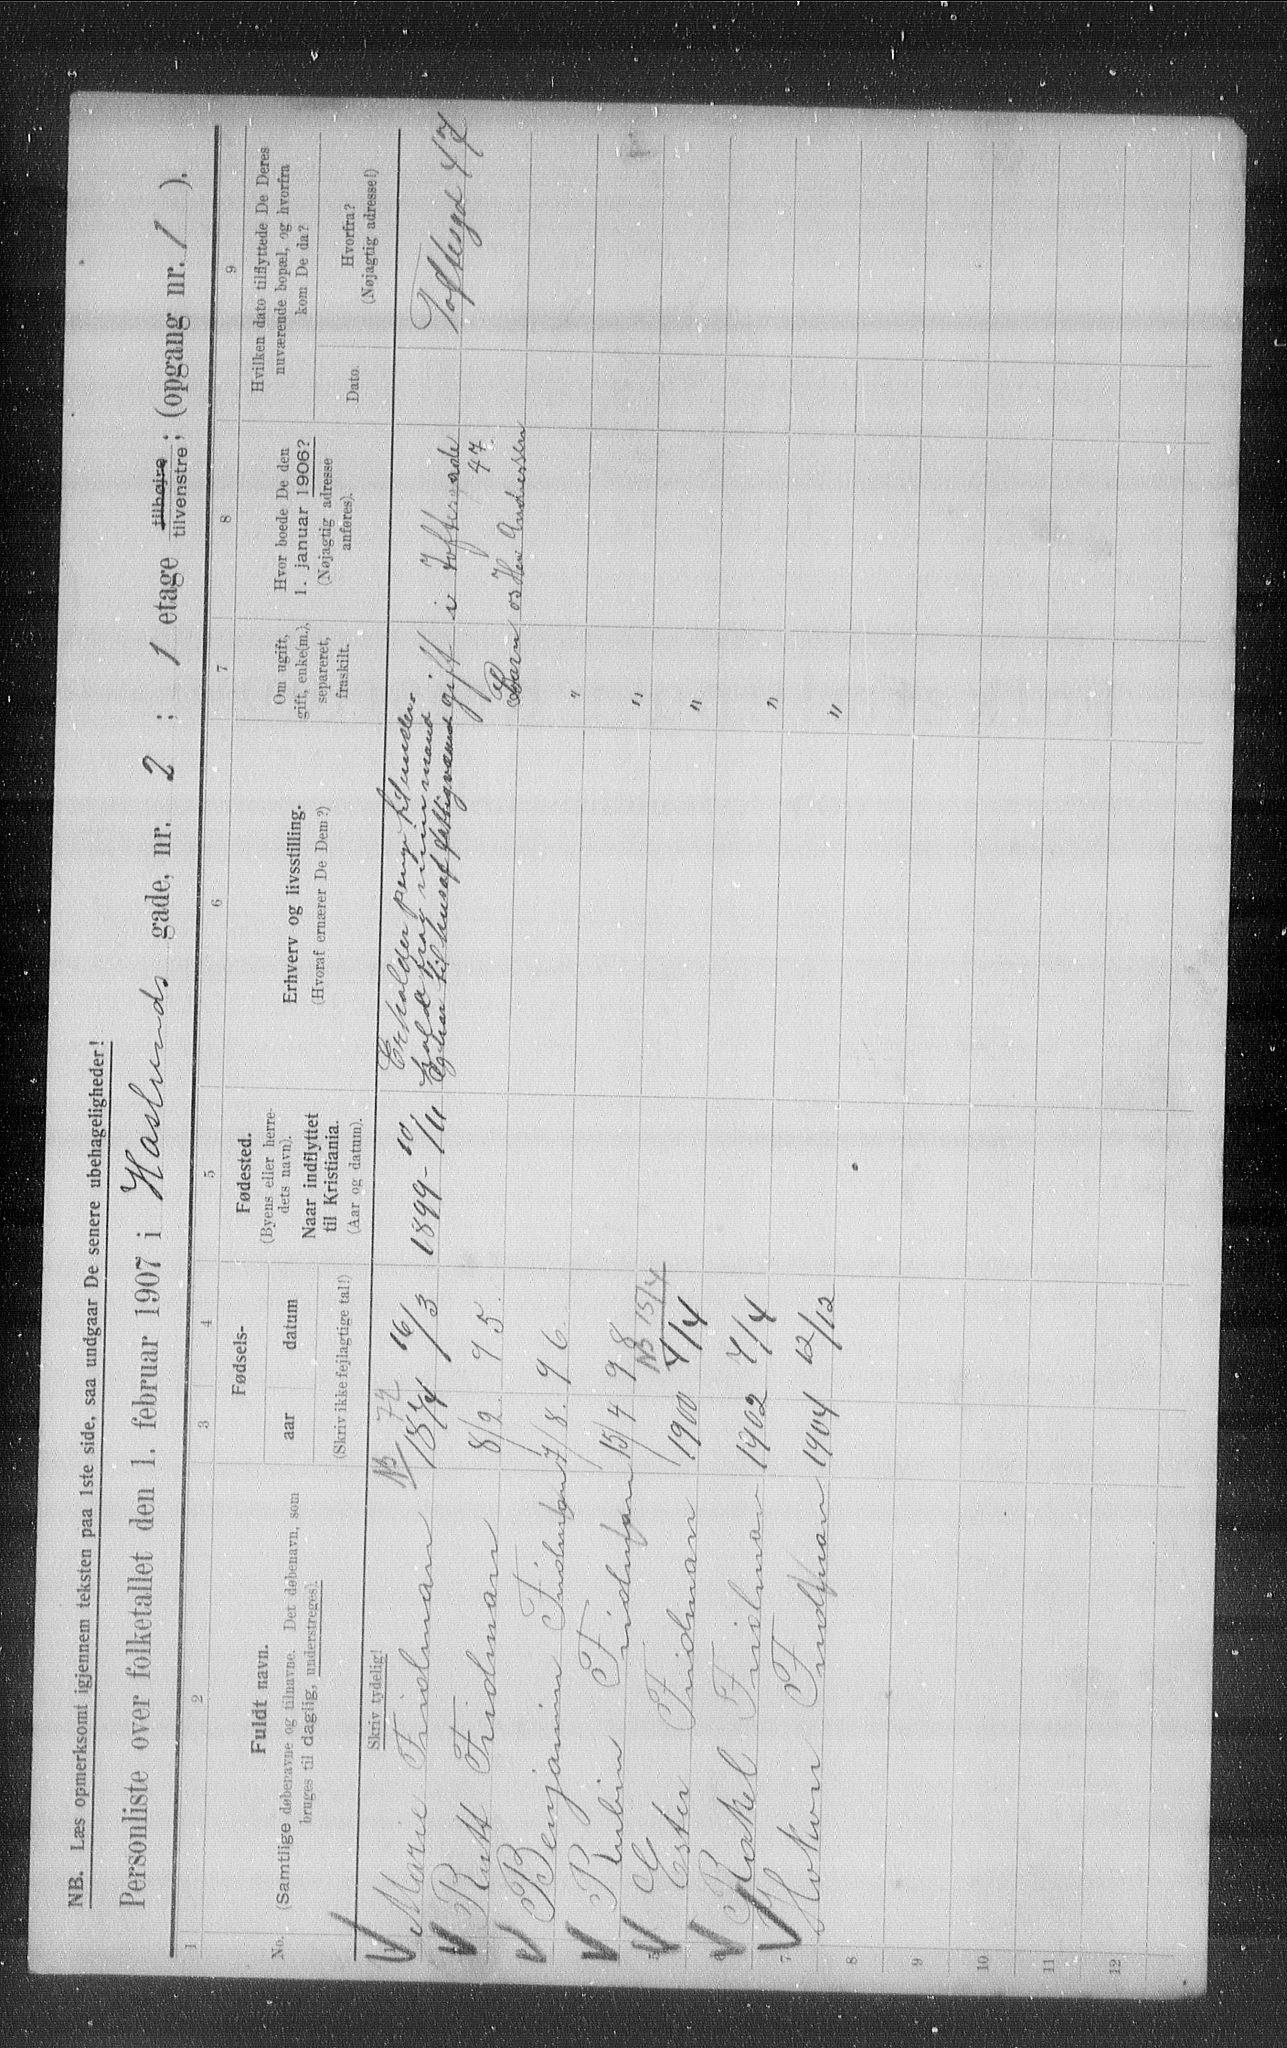 NB. Læs opmerksomt igjennem teksten paa 1ste side, saa undgaar De senere ubehageligheder!
Personliste over folketallet den 1. februar 1907 i Haslunds gade, nr. 2 ; 1 etage tilhøjre tilvenstre; (opgang nr. 1 ).
1 2 3 4 5 6 7 8 9
No.
Fuldt navn.
(Samtlige døbenavne og tilnavne. Det døbenavn, som
bruges til daglig, understreges).
Fødsels-
aar datum
(Skriv ikke fejlagtige tal!)
Fødested.
(Byens eller herre-
dets navn).
Naar indflyttet
til Kristiania.
(Aar og datum).
Erhverv og livsstilling.
(Hvoraf ernærer De Dem?)
Om ugift,
gift, enke(m.),
separeret,
fraskilt.
Hvor boede De den
1. januar 1906?
(Nøjagtig adresse
anføres).
Hvilken dato tilflyttede De Deres
nuværende bopæl, og hvorfra
kom De da?
Dato.
Hvorfra?
(Nøjagtig adresse!)
Skriv tydelig!
NB 72
Marie Fridman 1874 16/3 1899 - 10/11
Erholder penge til under
hold fra min mand
gift i Toftesgade 47
Toftesgd 47
Rutt Fridman 8/2. 95. Barn os Hans Andressen
Benjamin Fridman 7/8. 96. "
Rubin Fridman 15/4 98 "
NB 15/4
5 Ester Fridman 1900 4/4 "
6 Rakel Fridman 1902 7/4 "
7 Hokon Fridman 1904 12/12 "
8
9
10
11
12